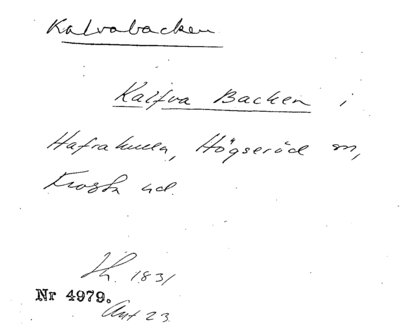 Kalvabacken
Kalfva Backen i
Hafrakulla, Högseröd sn,
Frosta hd.
Sk. 1831
Nr 4979.
Akt 23